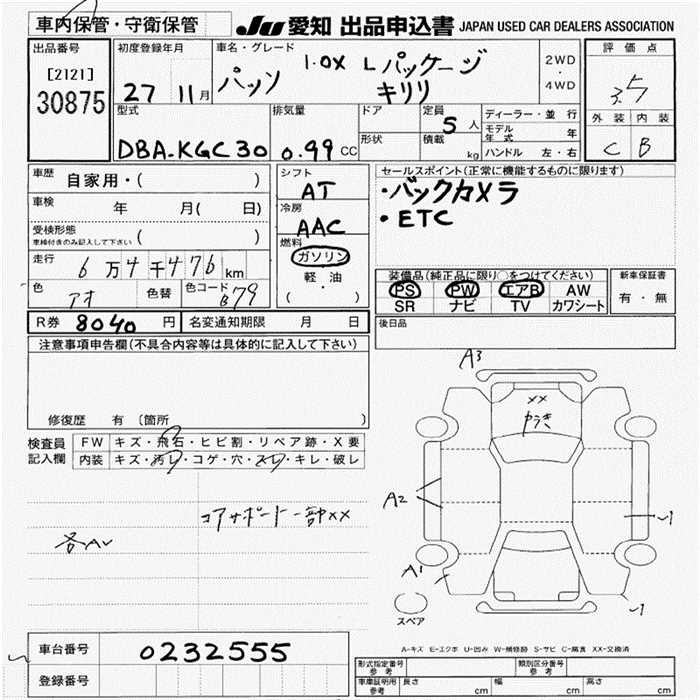 車内保管・守衛保管 JU 愛知 出品申込書 JAPAN USED CAR DEALERS ASSOCIATION
出品番号 初度登録年月 車名・グレード 評価点
[2121] 30875 27 11月 パッソ 1.0X Lパッケージ キリリ 2WD・4WD 3.5
型式 排気量 ドア 定員 5人 ディーラー・並行 外装 内装
形状 積載 kg モデル年式 年 C B
DBA-KGC30 0.99CC ハンドル 左・右
車歴 自家用・( ) シフト AT セールスポイント(正常に機能するものに限ります)
車検 年 月( 日) 冷房 AAC ・バックカメラ
受検形態 車検付きのみ記入して下さい ( ) ・ETC
走行 6万4千476km 燃料 ガソリン
色 アオ 色替 色コード B79 軽・油 ( )
装備品(純正品に限り○をつけてください) 新車保証書
PS PW エアB AW 有・無
SR ナビ TV カワシート
R券 8040円 名変通知期限 月 日 後日品
注意事項申告欄(不具合内容等は具体的に記入して下さい)
修復歴 有 (箇所 )
検査員記入欄 FW キズ・飛石・ヒビ割・リペア跡・X要
内装 キズ・汚レ・コゲ・穴・スレ・キレ・破レ
コアサポート一部XX
各AU
A3
XX
A2
A1
スペア
A-キズ E-エクボ U-凹み W-補修跡 S-サビ C-腐食 XX-交換済
車台番号 0232555
登録番号
形式指定番号 参考 類別区分番号 参考
車庫証明用 参考 長さ cm 幅 cm 高さ cm